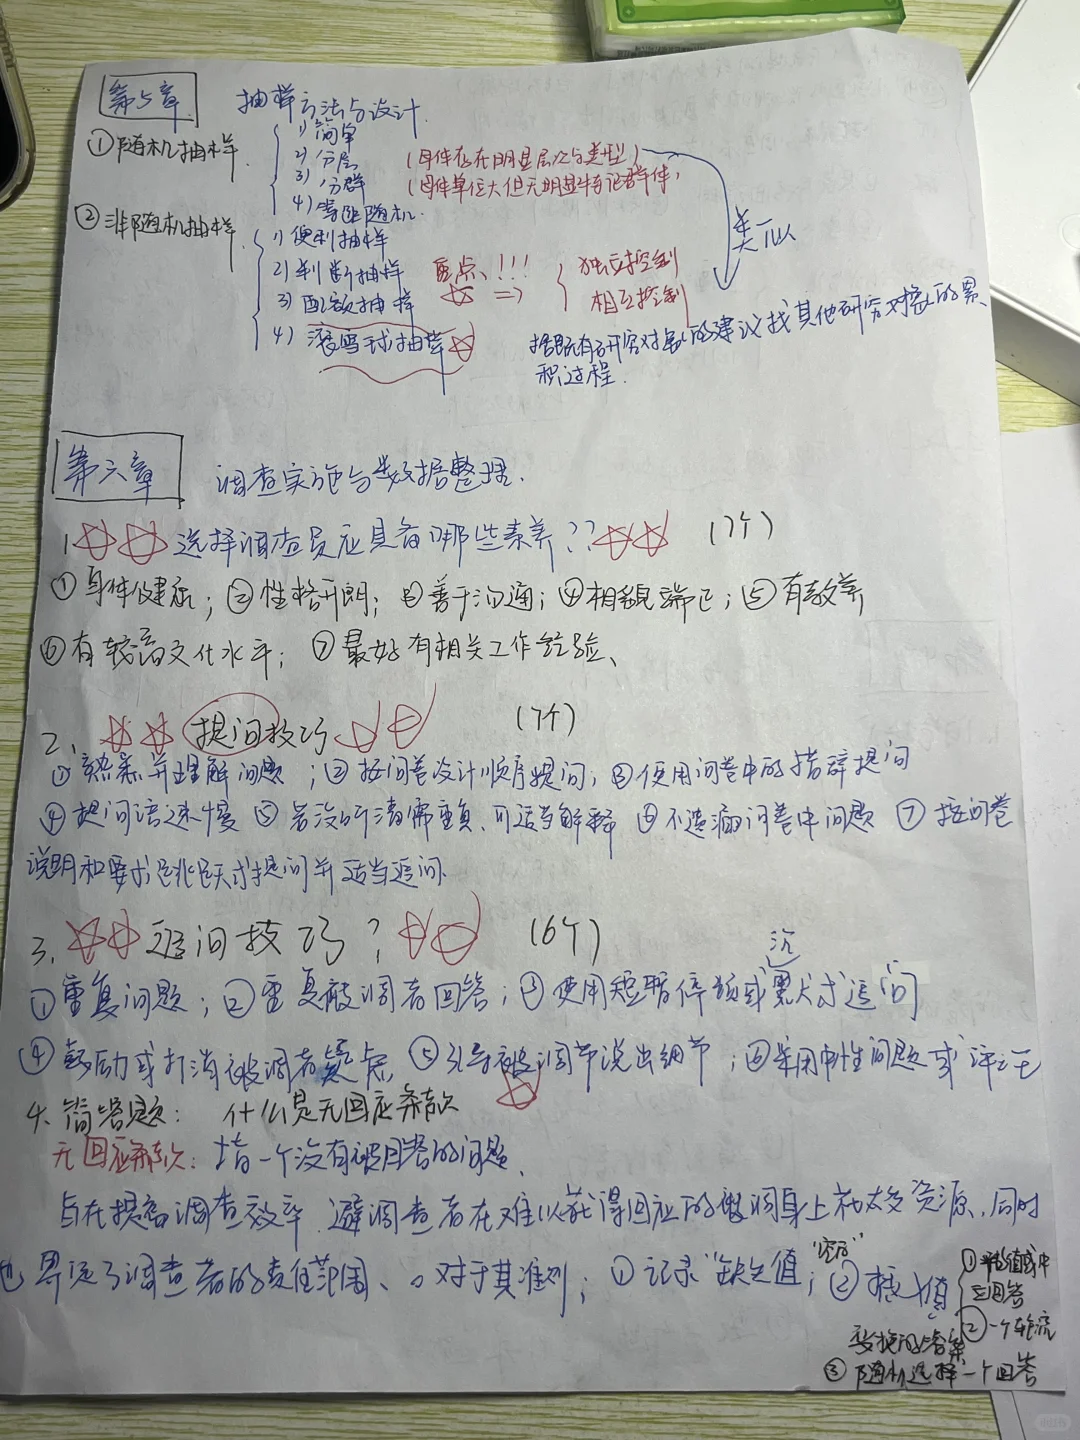 第5章 抽样方法与设计.
①随机抽样.
1) 简单
2) 分层 (母体存在明显层次与类型)
3) 分群 (母体单位大但无明显
4) 等距随机.
类似
②非随机抽样.
1) 便利抽样
2) 判断抽样 重点、!!!
3) 配额抽样 => 独立控制
相互控制
4) 滚雪球抽样
据既有研究对象的建议找其他研究对象的累
积过程.
第六章 调查实施与数据整理.
1. 选择调查员应具备哪些素养?? (7个)
①身体健康; ②性格开朗; ③善于沟通; ④相貌端正; ⑤有教养
⑥有较高文化水平; ⑦最好有相关工作经验、
2、提问技巧 (7个)
①熟悉并理解问题; ②按问卷设计顺序提问; ③使用问卷中的措辞提问
④提问语速慢 ⑤若没听清需重复,可适当解释 ⑥不遗漏问卷中问题 ⑦按问卷
说明和要求跳跃式提问并适当追问.
3. 追问技巧? (6个)
沉
①重复问题; ②重复被调者回答; ③使用短暂停顿或默式追问
④鼓励或打消被调者疑虑 ⑤引导被调节说出细节; ⑥采用中性问题或评
4. 简答题: 什么是无回应条款
无回应条款: 指一个没有被回答的问题、
旨在提高调查效率.避调查者在难以获得回应的被调身上花太多资源,同时
也界定了调查者的责任范围、。对于其准则; ①记录"缺失值; ②插入值
①平均值或中
立回答
②一个轮流
变换的答案
③随机选择一个回答
小红书